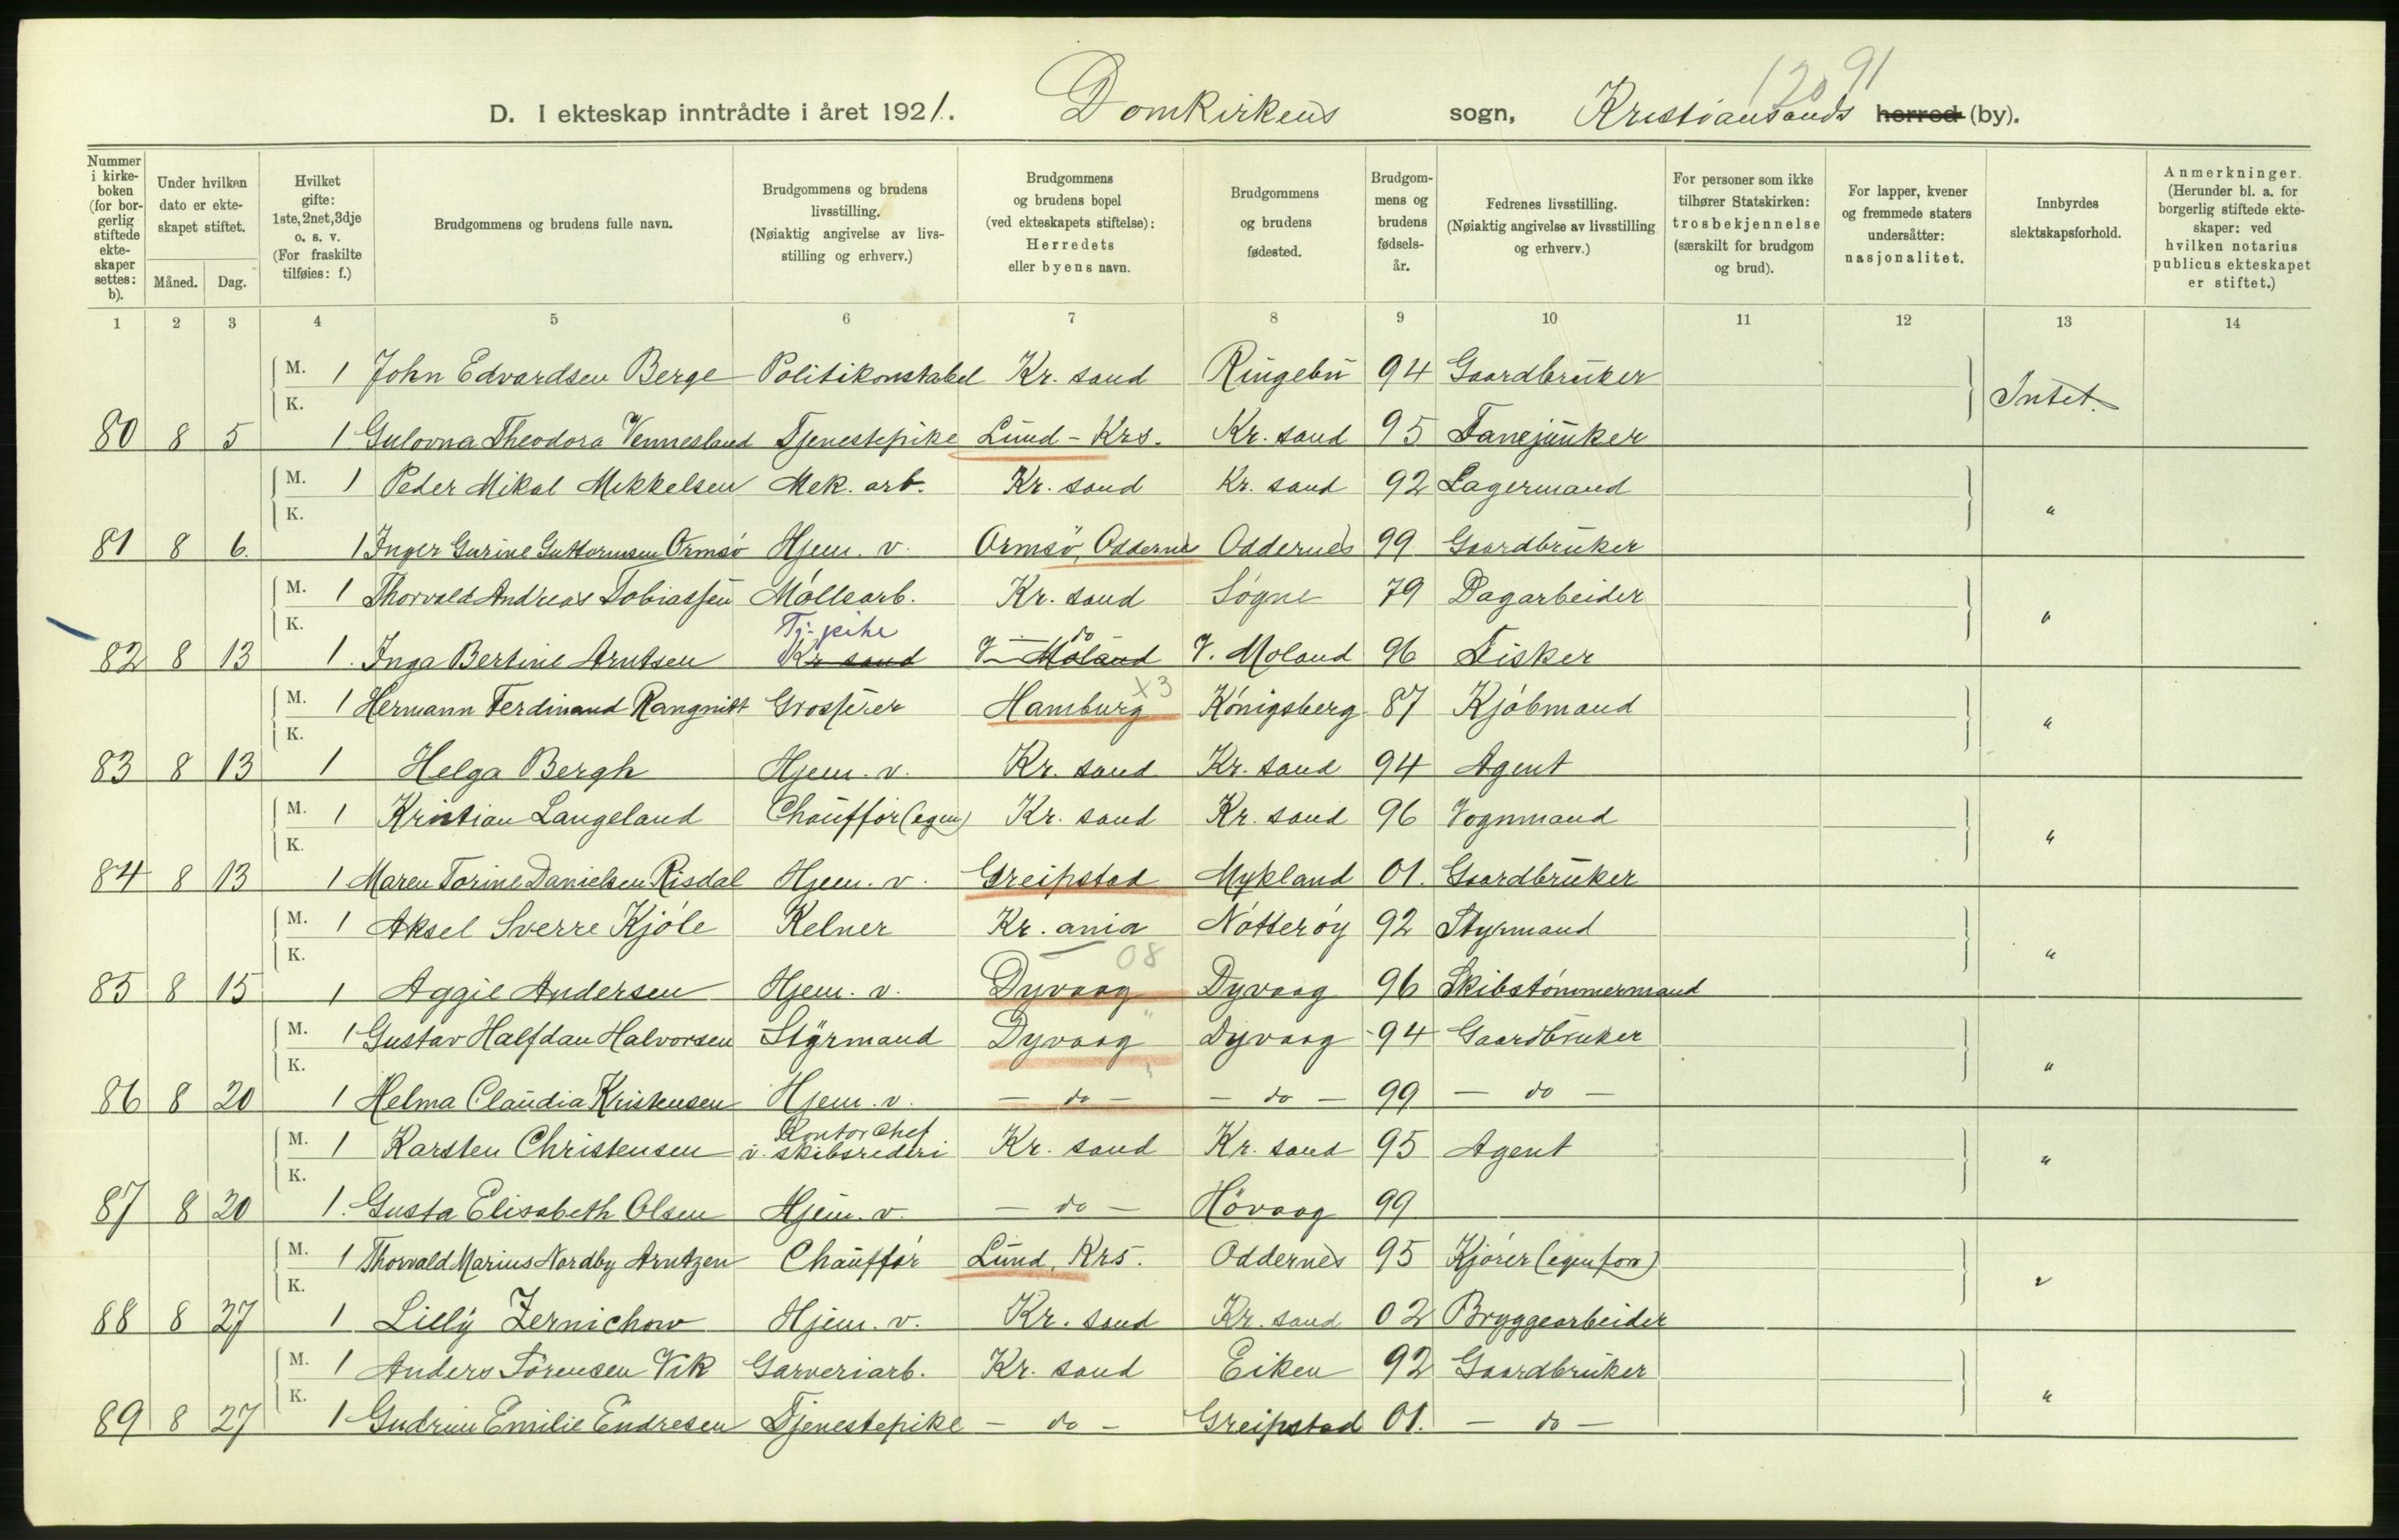 12091
D. I ekteskap inntrådte i året 1921. Domkirkens sogn, Kristiansands herred (by).
Nummer i kirke-boken (for bor-gerlig stiftede ekte-skaper settes: b).
Under hvilken dato er ekte-skapet stiftet.
Måned. Dag.
Hvilket gifte: 1ste, 2net, 3dje o. s. v. (For fraskilte tilføies: f.)
Brudgommens og brudens fulle navn.
Brudgommens og brudens livsstilling. (Nøiaktig angivelse av livs-stilling og erhverv.)
Brudgommens og brudens bopel (ved ekteskapets stiftelse): Herredets eller byens navn.
Brudgommens og brudens fødested.
Brudgom-mens og brudens fødsels-år.
Fedrenes livsstilling. (Nøiaktig angivelse av livsstilling og erhverv.)
For personer som ikke tilhører Statskirken: trosbekjennelse (særskilt for brudgom og brud).
For lapper, kvener og fremmede staters undersåtter: nasjonalitet.
Innbyrdes slektskapsforhold.
Anmerkninger. (Herunder bl. a. for borgerlig stiftede ekte-skaper: ved hvilken notarius publicus ekteskapet er stiftet.)
1 2 3 4 5 6 7 8 9 10 11 12 13 14
M. 1 John Edvardsen Berge Politikonstabel Kr. sand Ringebu 94 Gaardbruker
K. Intet.
80 8 5 1 Gulovna Theodora Vennesland Tjenestepike Lund - Krs. Kr. sand 95 Fanejunker
M. 1 Peder Mikal Mikkelsen Mek. arb. Kr. sand Kr. sand 92 Lagermand
K. "
81 8 6. 1 Inger Gurine Guttormsen Ormsö Hjem. v. Ormsö, Oddernes Oddernes 99 Gaardbruker
M. 1 Thorvald Andreas Tobiassen Mølloarb. Kr. sand Søgne 79 Dagarbeider
K. Tj-pike do "
82 8 13 1. Inga Bertine Arntsen Kr sand V. Moland V. Moland 96 Fisker
M. 1 Hermann Ferdinand Rangnitt Grosserer Hamburg x3 Königsberg 87 Kjøbmand
K. "
83 8 13 1 Helga Bergh Hjem. v. Kr. sand Kr. sand 94 Agent
M. 1 Kristian Langeland Chauffør (egen) Kr. sand Kr. sand 96 Vognmand
K. "
84 8 13 1 Maren Torine Danielsen Risdal Hjem. v. Greipstad Mykland 01. Gaardbruker
M. 1 Aksel Sverre Kjøle Kelner Kr. ania Nøtterøy 92 Styrmand
K. 08 "
85 8 15 1 Aggie Andersen Hjem. v. Dyvaag Dyvaag 96 Skibstømmermand
M. 1 Gustav Halfdan Halvorsen Styrmand Dyvaag " Dyvaag 94 Gaardbruker
K. "
86 8 20 1 Helma Claudia Kristensen Hjem. v. - do - - do - 99 - do -
Kontorchef
M. 1 Karsten Christensen i skibsrederi Kr. sand Kr. sand 95 Agent
K. "
87 8 20 1. Gusta Elisabeth Olsen Hjem. v. - do - Høvaag 99
M. 1 Thorvald Marius Nordby Arntzen Chauffør Lund, Krs. Oddernes 95 Kjører (egen forr)
K. "
88 8 27 1 Lilly Zernichow Hjem. v. Kr. sand Kr. sand 02 Bryggearbeider
M. 1 Anders Sørensen Vik Garveriarb. Kr. sand Eiken 92 Gaardbruker
K. "
89 8 27 1 Gudrun Emilie Endresen Tjenestepike - do - Greipstad 01. - do -